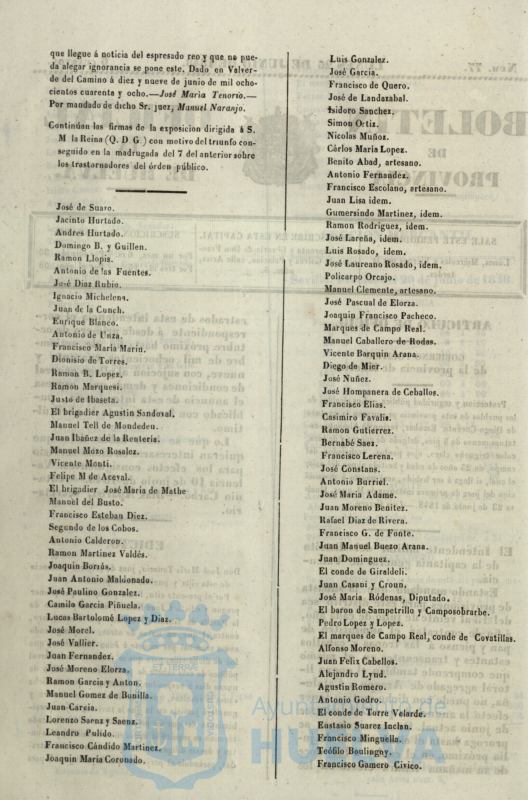 que llegue á noticia del espresado reo y que no pue-
da alegar ignorancia se pone este. Dado en Valver-
de del Camino á diez y nueve de junio de mil ocho-
cientos cuarenta y ocho.—José Maria Tenorio.—
Por mandado de dicho Sr. juez, Manuel Naranjo.
Continúan las firmas de la exposicion dirigida á S.
M la Reina (Q. D. G.) con motivo del triunfo con-
seguido en la madrugada del 7 del anterior sobre
los trastornadores del órden público.
José de Suaro.
Jacinto Hurtado.
Andres Hurtado.
Domingo B. y Guillen.
Ramon Llopis.
Antonio de las Fuentes.
José Diaz Rubio.
Ignacio Michelena.
Juan de la Cunch.
Enrique Blanco.
Antonio de Unza.
Francisco Maria Marin.
Dionisio de Torres.
Ramon B. Lopez.
Ramon Marquesi.
Justo de Ibaseta.
El brigadier Agustin Sandoval.
Manuel Tell de Mondedeu.
Juan Ibañez de la Rentería.
Manuel Mozo Rosalez.
Vicente Monti.
Felipe M de Aceval.
El brigadier José Maria de Mathe
Manuel del Busto.
Francisco Esteban Diez.
Segundo de los Cobos.
Antonio Calderon.
Ramon Martinez Valdés.
Joaquin Borrás.
Juan Antonio Maldonado.
José Paulino Gonzalez.
Camilo Garcia Piñuela.
Lucas Bartolomé Lopez y Diaz.
José Morel.
José Vallier.
Juan Fernandez.
José Moreno Elorza.
Ramon Garcia y Anton.
Manuel Gomez de Bonilla.
Juan Garcia.
Lorenzo Saenz y Saenz.
Leandro Pulido.
Francisco Cándido Martinez.
Joaquin Maria Coronado.
Luis Gonzalez.
José Garcia.
Francisco de Quero.
José de Landazabal.
Isidoro Sanchez.
Simon Ortiz.
Nicolas Muñoz.
Cárlos Maria Lopez.
Benito Abad, artesano.
Antonio Fernandez.
Francisco Escolano, artesano.
Juan Lisa idem.
Gumersindo Martinez, idem.
Ramon Rodriguez, idem.
José Lareña, idem.
Luis Rosado, idem.
José Laureano Rosado, idem.
Policarpo Orcajo.
Manuel Clemente, artesano.
José Pascual de Elorza.
Joaquin Francisco Pacheco.
Marques de Campo Real.
Manuel Caballero de Rodas.
Vicente Barquin Arana.
Diego de Mier.
José Nuñez.
José Hompanera de Ceballos.
Francisco Elias.
Casimiro Favalis.
Ramon Gutierrez.
Bernabé Saez.
Francisco Lerena.
José Constans.
Antonio Burriel.
José Maria Adame.
Juan Moreno Benitez.
Rafael Diaz de Rivera.
Francisco G. de Fonte.
Juan Manuel Buezo Arana.
Juan Dominguez.
El conde de Giraldeli.
Juan Casani y Croun.
José Maria Ródenas, Diputado.
El baron de Sampetrillo y Camposobrarbe.
Pedro Lopez y Lopez.
El marques de Campo Real, conde de Covatillas.
Alfonso Moreno.
Juan Felix Cabellos.
Alejandro Lynd.
Agustin Romero.
Antonio Godro.
El conde de Torre Velarde.
Eustasio Suarez Inclan.
Francisco Minguella.
Teófilo Boulingny.
Francisco Gamero Civico.